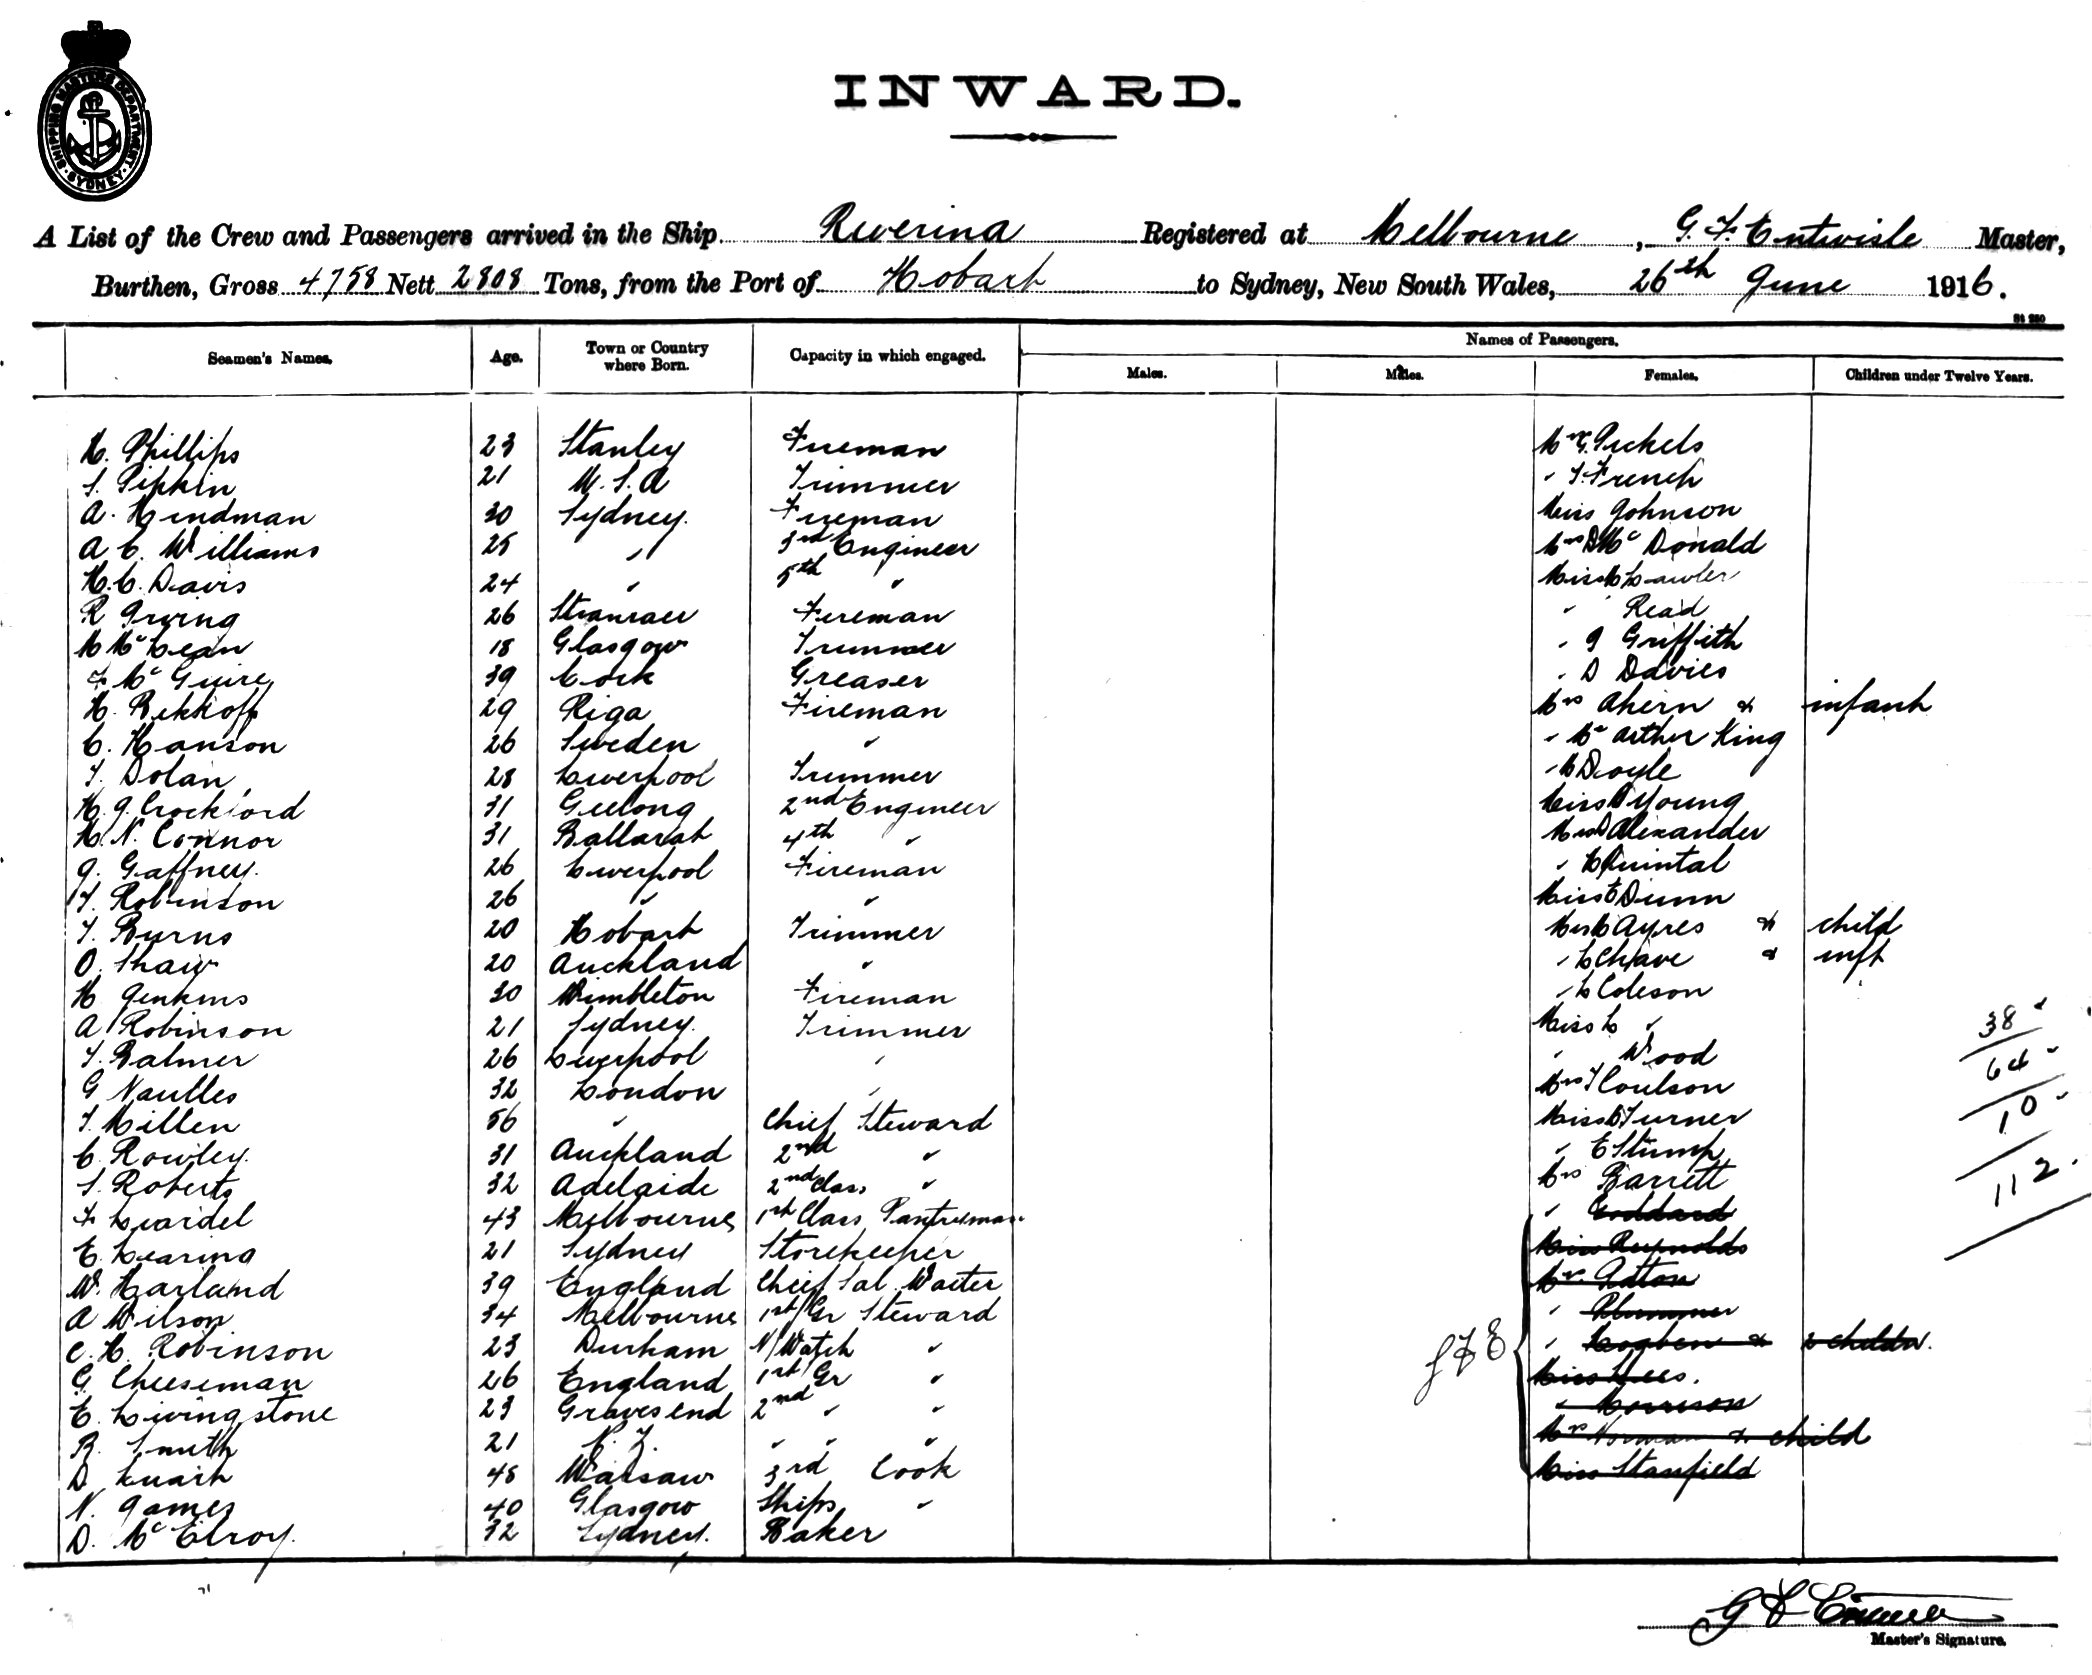 SHIPPING MASTERS DEPARTMENT. SYDNEY
INWARD.
A List of the Crew and Passengers arrived in the Ship Riverina Registered at Melbourne, G. F. Entwisle Master,
Burthen, Gross 4758 Nett 2808 Tons, from the Port of Hobart to Sydney, New South Wales, 26th June 1916.
Names of Passengers.
Seamen's Names. Age. Town or Country where Born. Capacity in which engaged. Males. Males. Females. Children under Twelve Years.
H. Phillips 23 Stanley Fireman Mrs G. Pickels
S. Pipkin 21 U.S.A Trimmer " F. French
A. Hindman 30 Sydney. Fireman Miss Johnson
A C. Williams 25 " 3rd Engineer Mrs D Mc Donald
H. C. Davis 24 " 5th " Miss M Lawler
R Irving 26 Stranraer Fireman " Read
M McLean 18 Glasgow Trimmer " J Griffith
F. Mc Guire 39 Cork Greaser " D Davies
H. Rekkoff 29 Riga Fireman Mrs Ahern & infant
C. Hanson 26 Sweden " " Mc Arthur King
T. Dolan 28 Liverpool Trimmer " M Doyle
H. J. Crockford 31 Geelong 2nd Engineer Miss Young
H. N. Connor 31 Ballarat 4th " Mrs Alexander
J. Gaffney. 26 Liverpool Fireman " Quintal
T. Robinson 26 " " Miss E Dunn
T. Burns 20 Hobart Trimmer Mrs M Ayres & child
O. Shaw 20 Auckland " " L Chave & inft
H Jenkins 30 Wimbleton Fireman " L Coleson
A Robinson 21 Sydney. Trimmer Miss L "
T. Balmer 26 Liverpool " " Wood
G Naulles 32 London " Mrs T Coulson
T. Millen 56 " Chief Steward Miss Turner
C. Rowley. 31 Auckland 2nd " " E Stump
S. Roberts 32 Adelaide 2nd Class " Mrs Barrett
F. Luardel 43 Melbourne 1st Class Pantryman " Goddard
E. Learing 21 Sydney Storekeeper Miss Reynolds
W. Harland 39 England Chief Sal. Waiter Mrs Adton
A Wilson 34 Melbourne 1st Gr Steward " Plummer
C. H. Robinson 23 Durham N/Watch " " Hogben & 2 childn.
G. Cheeseman 26 England 1st Gr " Miss Lees.
E. Livingstone 23 Gravesend 2nd " " " Morrison
R. Smith 21 N. Z. " " " Mrs Norman & child
D. 48 Warsaw 3rd Cook Miss Stanfield
N. James 40 Glasgow Ships "
D. Mc Elroy. 32 Sydney. Baker
38
64
10
112.
G F E
Master's Signature.